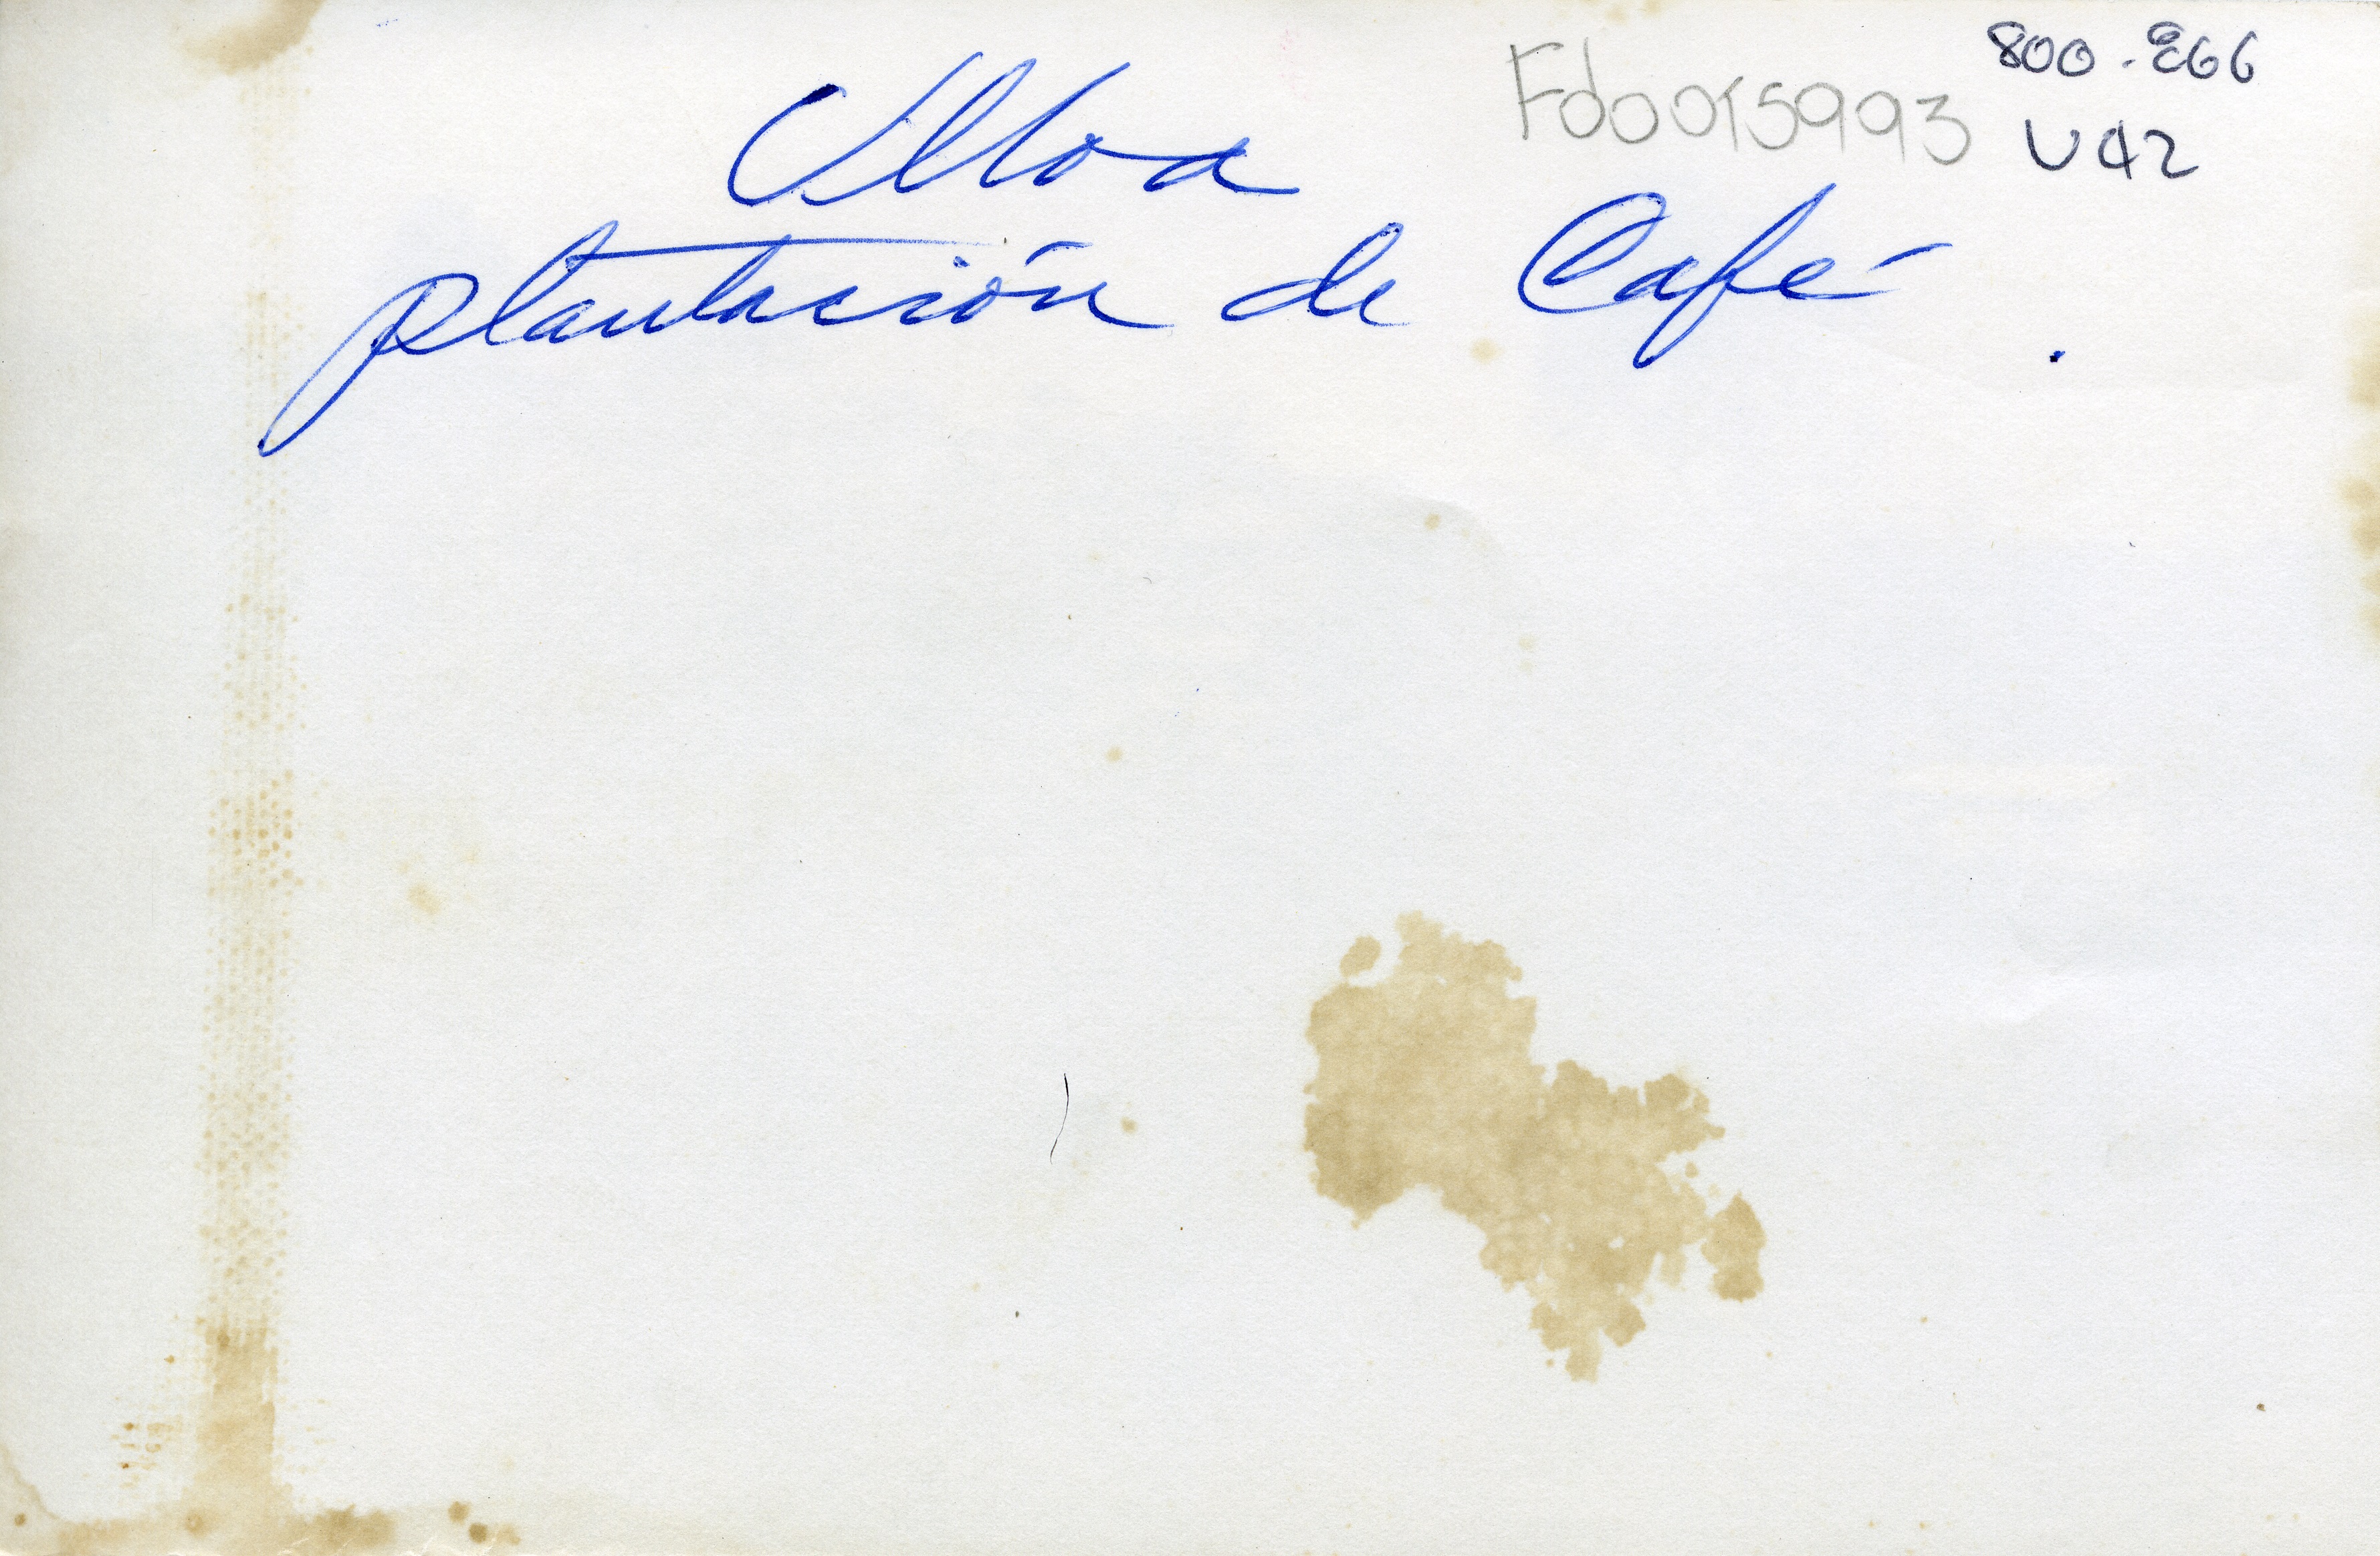 Ulloa
plantación de Café
Fd0015993
800-E66
U42